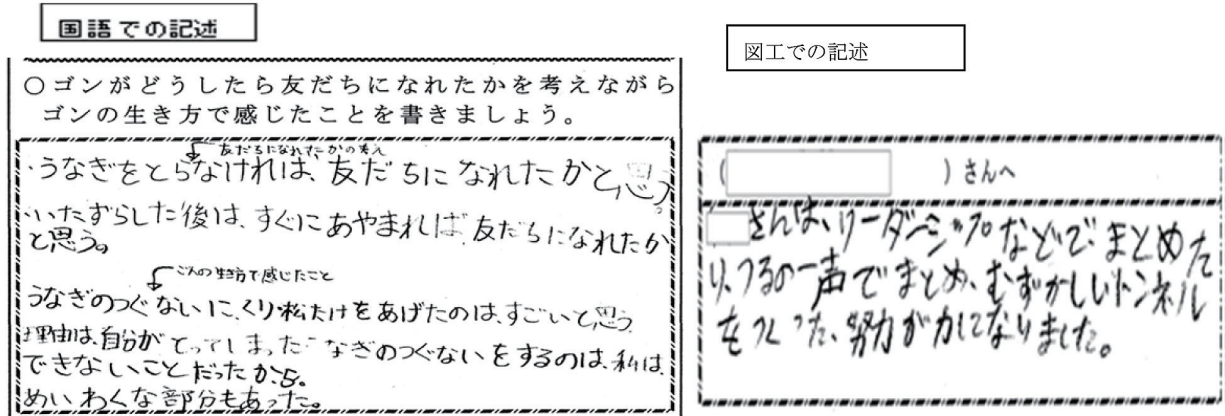 国語での記述
○ゴンがどうしたら友だちになれたかを考えながら
ゴンの生き方で感じたことを書きましょう。
友だちになれたかの考え
・うなぎをとらなければ、友だちに なれたかと思う。
・いたずらした後は、すぐにあやまれば、友だちになれたか
と思う。
ごんの生き方で感じたこと
うなぎのつぐないに、くり松たけをあげたのは、すごいと思う
理由は、自分がとってしまったうなぎのつぐないをするのは、私は、
できないことだったから。
めいわくな部分もあった。
図工での記述
( ) さんへ
さんは、リーダーシップなどで、まとめた
り、つるの一声でまとめ、むずかしいトンネル
をつくった、努力が力になりました。